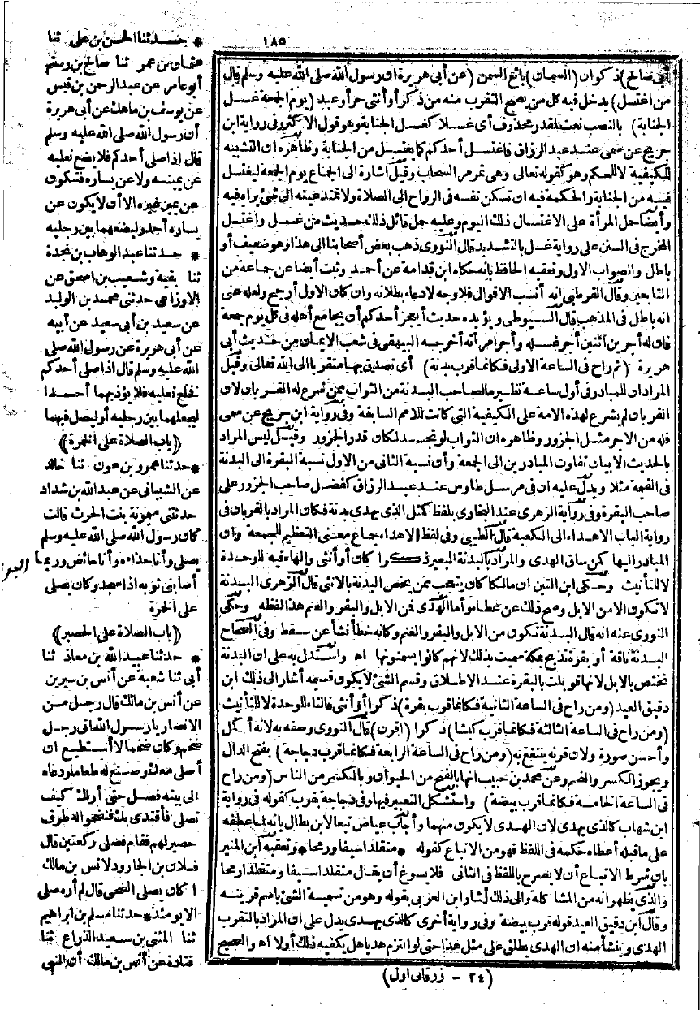 ١٨٥
أبي صالح) ذكوان (السمان) بائع السمن (عن أبي هريرة ان رسول الله صلى الله عليه وسلم قال
من اغتسل) يدخل فيه كل من يصح التقرب منه من ذكر أو أنثى حر أو عبد (يوم الجمعة غسل
الجنابة) بالنصب نعت لمقدر محذوف أي غسلا كغسل الجنابة وهو قول الاكثر وفي رواية ابن
جريج عن سمى عند عبد الرزاق فاغتسل أحدكم كما يغتسل من الجنابة وظاهره ان التشبيه
للكيفية لا للحكم وهو كقوله تعالى وهي تمر مر السحاب وقيل اشارة الى الجماع يوم الجمعة ليغتسل
فيه من الجنابة والحكمة فيه ان تسكن نفسه في الرواح الى الصلاة ولا تمتد عينه الى شئ يراه فيه
وأيضا حمل المرأة على الاغتسال ذلك اليوم وعليه حمل قائل ذلك حديث من غسل واغتسل
المخرج في السنن على رواية غسل بالتشديد قال النووي ذهب بعض أصحابنا الى هذا وهو ضعيف أو
باطل والصواب الاول وتعقبه الحافظ بانه حكاه ابن قدامة عن أحمد وثبت أيضا عن جماعة من
التابعين وقال القرطبي انه أنسب الاقوال فلا وجه لادعاء بطلانه وان كان الاول أرجح ولعله عنى
انه باطل في المذهب قال السيوطي ويؤيده حديث أيعجز أحدكم أن يجامع أهله في كل يوم جمعة
فان له أجرين اثنين أجر غسله وأجر امرأته أخرجه البيهقي في شعب الايمان من حديث أبي
هريرة (ثم راح في الساعة الاولى فكأنما قرب بدنة) أي تصدق بها متقربا الى الله تعالى وقيل
المراد ان للمبادر في أول ساعة نظير ما لصاحب البدنة من الثواب ممن شرع له القربان لان
القربان لم يشرع لهذه الامة على الكيفية التي كانت للامم السابقة وفي رواية ابن جريج عن سمى
فله من الاجر مثل الجزور وظاهره ان الثواب لو تجسد لكان قدر الجزور وقيل ليس المراد
بالحديث الا بيان تفاوت المبادرين الى الجمعة وأن نسبة الثاني من الاول نسبة البقرة الى البدنة
في القيمة مثلا ويدل عليه ان في مرسل طاوس عند عبد الرزاق كفضل صاحب الجزور على
صاحب البقرة وفي رواية الزهري عند البخاري بلفظ كمثل الذي يهدى بدنة فكان المراد بالقربان في
رواية الباب الاهداء الى الكعبة قال الطيبي وفي لفظ الاهداء جماع معنى التعظيم للجمعة وان
المبادر اليها كمن ساق الهدى والمراد بالبدنة البعير ذكرا كان أو أنثى والهاء فيه للوحدة
لا للتأنيث وحكى ابن التين ان مالكا كان يتعجب ممن يخص البدنة بالانثى قال الازهري البدنة
لا تكون الا من الابل وصح ذلك عن عطاء وأما الهدى فمن الابل والبقر والغنم هذا لفظه وحكى
النووي عنه انه قال البدنة تكون من الابل والبقر والغنم وكأنه خطأ نشأ عن سقط وفي الصحاح
البدنة ناقة أو بقرة تذبح بمكة سميت بذلك لانهم كانوا يسمنونها اه واستدل به على ان البدنة
تختص بالابل لانها قوبلت بالبقرة عند الاطلاق وقسم الشئ لا يكون قسيمه أشار الى ذلك ابن
دقيق العيد (ومن راح في الساعة الثانية فكأنما قرب بقرة) ذكرا أو أنثى فالتاء للوحدة لا للتأنيث
(ومن راح في الساعة الثالثة فكأنما قرب كبشا) ذكرا (أقرن) قال النووي وصفه به لانه أكمل
وأحسن صورة ولان قرنه ينتفع به (ومن راح في الساعة الرابعة فكأنما قرب دجاجة) بفتح الدال
ويجوز الكسر والضم وعن محمد بن حبيب انها بالفتح من الحيوان وبالكسر من الناس (ومن راح
في الساعة الخامسة فكأنما قرب بيضة) واستشكل التعبير فيها وفي دجاجة بقرب كقوله في رواية
ابن شهاب كالذي يهدى لان الهدى لا يكون منهما وأجاب عياض تبعا لابن بطال بانه لما عطفه
على ما قبله أعطاه حكمه في اللفظ فهو من الاتباع كقوله * متقلدا سيفا ورمحا * وتعقبه ابن المنير
بان شرط الاتباع أن لا يصرح باللفظ في الثاني فلا يسوغ أن يقال متقلدا سيفا ومتقلدا رمحا
والذي يظهر انه من المشاكلة والى ذلك أشار ابن العربي بقوله وهو من تسمية الشئ باسم قرينه
وقال ابن دقيق العيد قوله قرب بيضة وفي رواية أخرى كالذي يهدى يدل على ان المراد بالتقرب
الهدى وينشأ منه ان الهدى يطلق على مثل هذا حتى لو التزم هديا هل يكفيه ذلك أولا اه والصحيح
(٢٤ - زرقاني اول)
* حدثنا الحسن بن علي ثنا
عثمان بن عمر ثنا صالح بن رستم
أبو عامر عن عبد الرحمن بن قيس
عن يوسف بن ماهك عن أبي هريرة
أن رسول الله صلى الله عليه وسلم
قال اذا صلى أحدكم فلا يضع نعليه
عن يمينه ولا عن يساره فتكون
عن يمين غيره الا أن لا يكون عن
يساره أحد وليضعهما بين رجليه
* حدثنا عبد الوهاب بن نجدة
ثنا بقية وشعيب بن اسحق عن
الاوزاعي حدثني محمد بن الوليد
عن سعيد بن أبي سعيد عن أبيه
عن أبي هريرة عن رسول الله صلى
الله عليه وسلم قال اذا صلى أحدكم
فخلع نعليه فلا يؤذ بهما أحدا
ليجعلهما بين رجليه أو ليصل فيهما
(باب الصلاة على الخمرة)
* حدثنا عمرو بن عون ثنا خالد
عن الشيباني عن عبد الله بن شداد
حدثتني ميمونة بنت الحرث قالت
كان رسول الله صلى الله عليه وسلم
يصلى وأنا حذاءه وأنا حائض وربما
أصابني ثوبه اذا سجد وكان يصلى
على الخمرة
(باب الصلاة على الحصير)
* حدثنا عبيد الله بن معاذ ثنا
أبي ثنا شعبة عن أنس بن سيرين
عن أنس بن مالك قال قال رجل من
الانصار يا رسول الله اني رجل
ضخم وكان ضخما لا أستطيع ان
أصلى معك وصنع له طعاما ودعاه
الى بيته فصل حتى أراك كيف
تصلى فأقتدى بك فنضحوا له طرف
حصير لهم فقام فصلى ركعتين قال
فلان بن الجارود لانس بن مالك
أكان يصلى الضحى قال لم أره صلى
الا يومئذ * حدثنا مسلم بن ابراهيم
ثنا المثنى بن سعيد الذراع ثنا
قتادة عن أنس بن مالك أن النبي